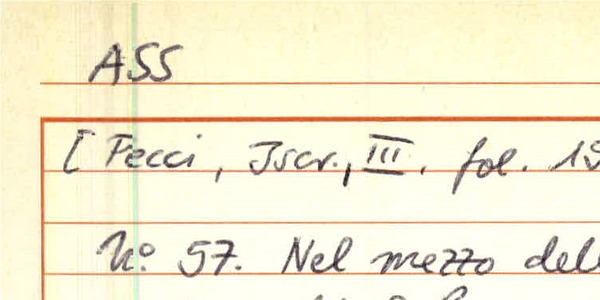 ASS
[ Pecci, Iscr., III. fol. 19
No. 57. Nel mezzo dell